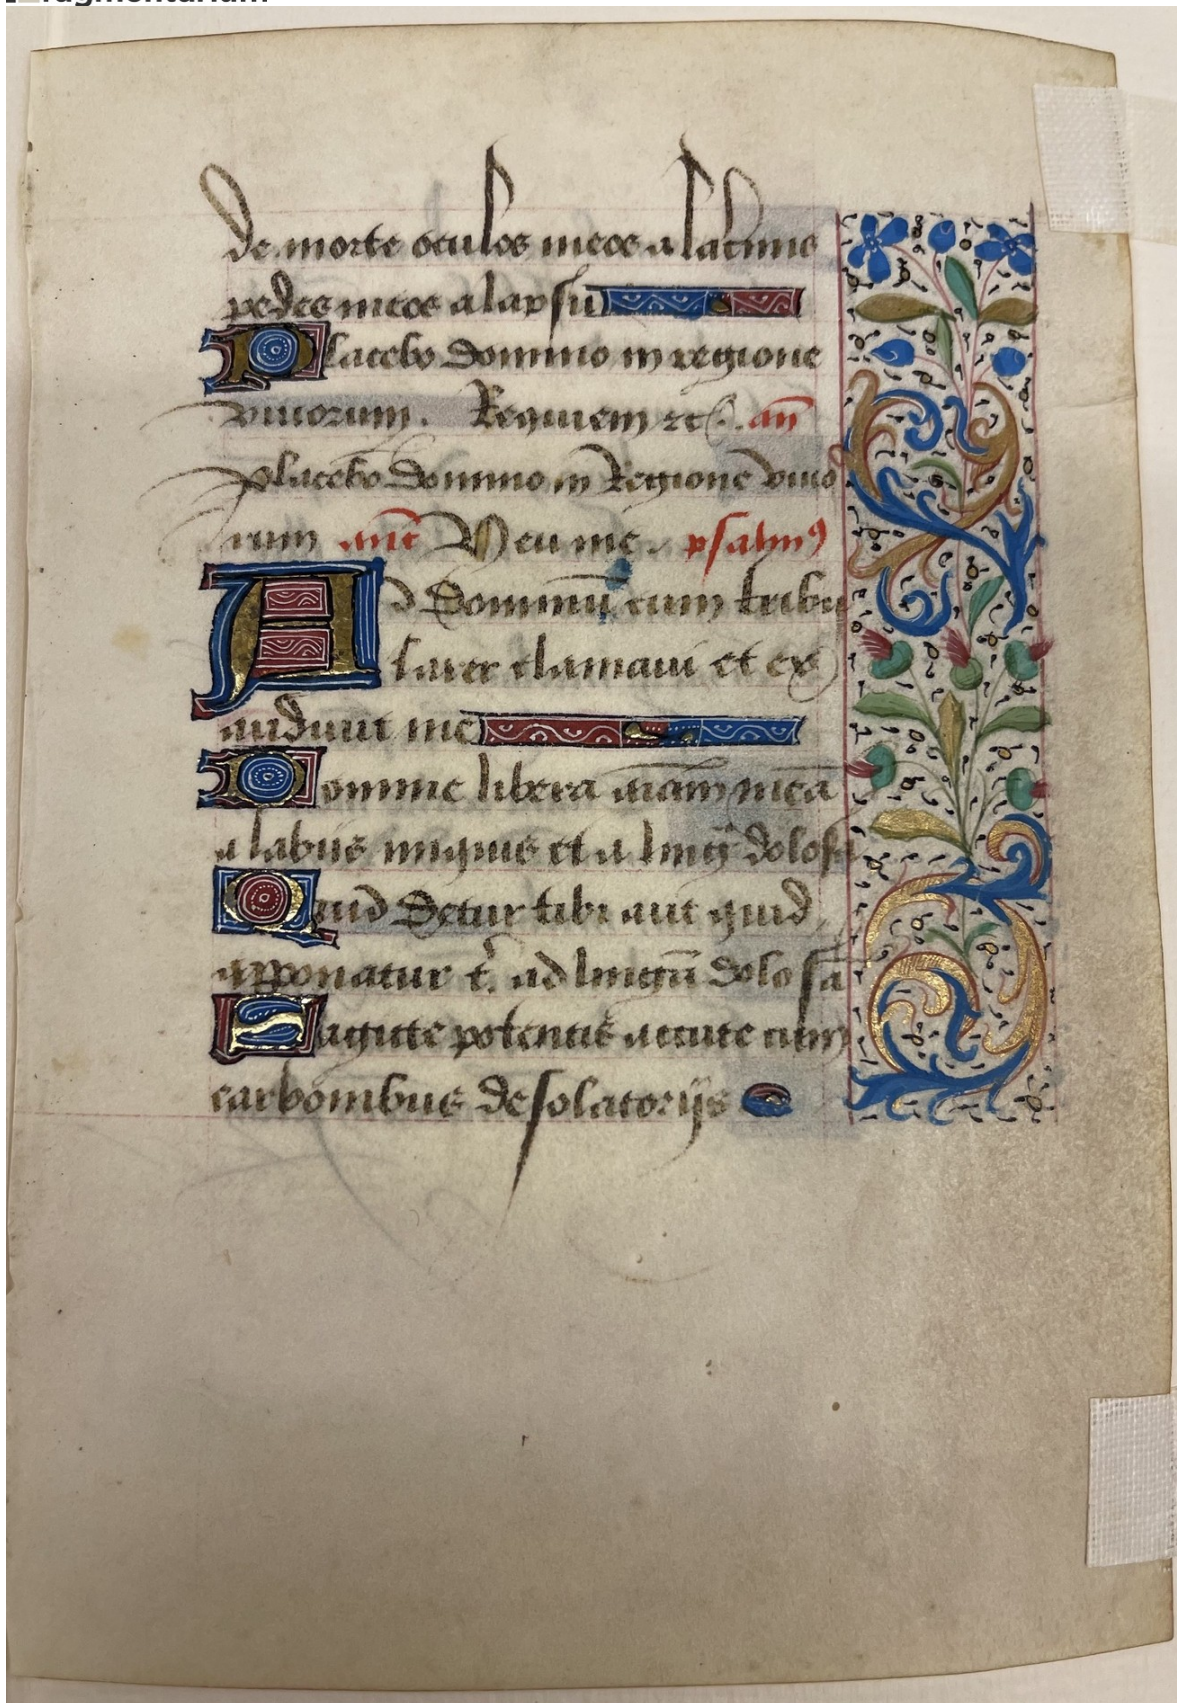 de morte oculos meos a lacrimis
pedes meos a lapsu
Placebo domino in regione
viuorum. Requiem etc. an̄
Placebo domino in Regione viuo
rum ant̄ Heu me. psalmꝰ
Ad dominū cum tribu
larer clamaui et ex
audiuit me
Domine libera aīam meā
a labiis iniquis et a lingᷓ dolosa
Quid detur tibi aut quid
apponatur t̉ ad linguā dolosā
Sagitte potentis accute cum
carbonibus desolatorijs